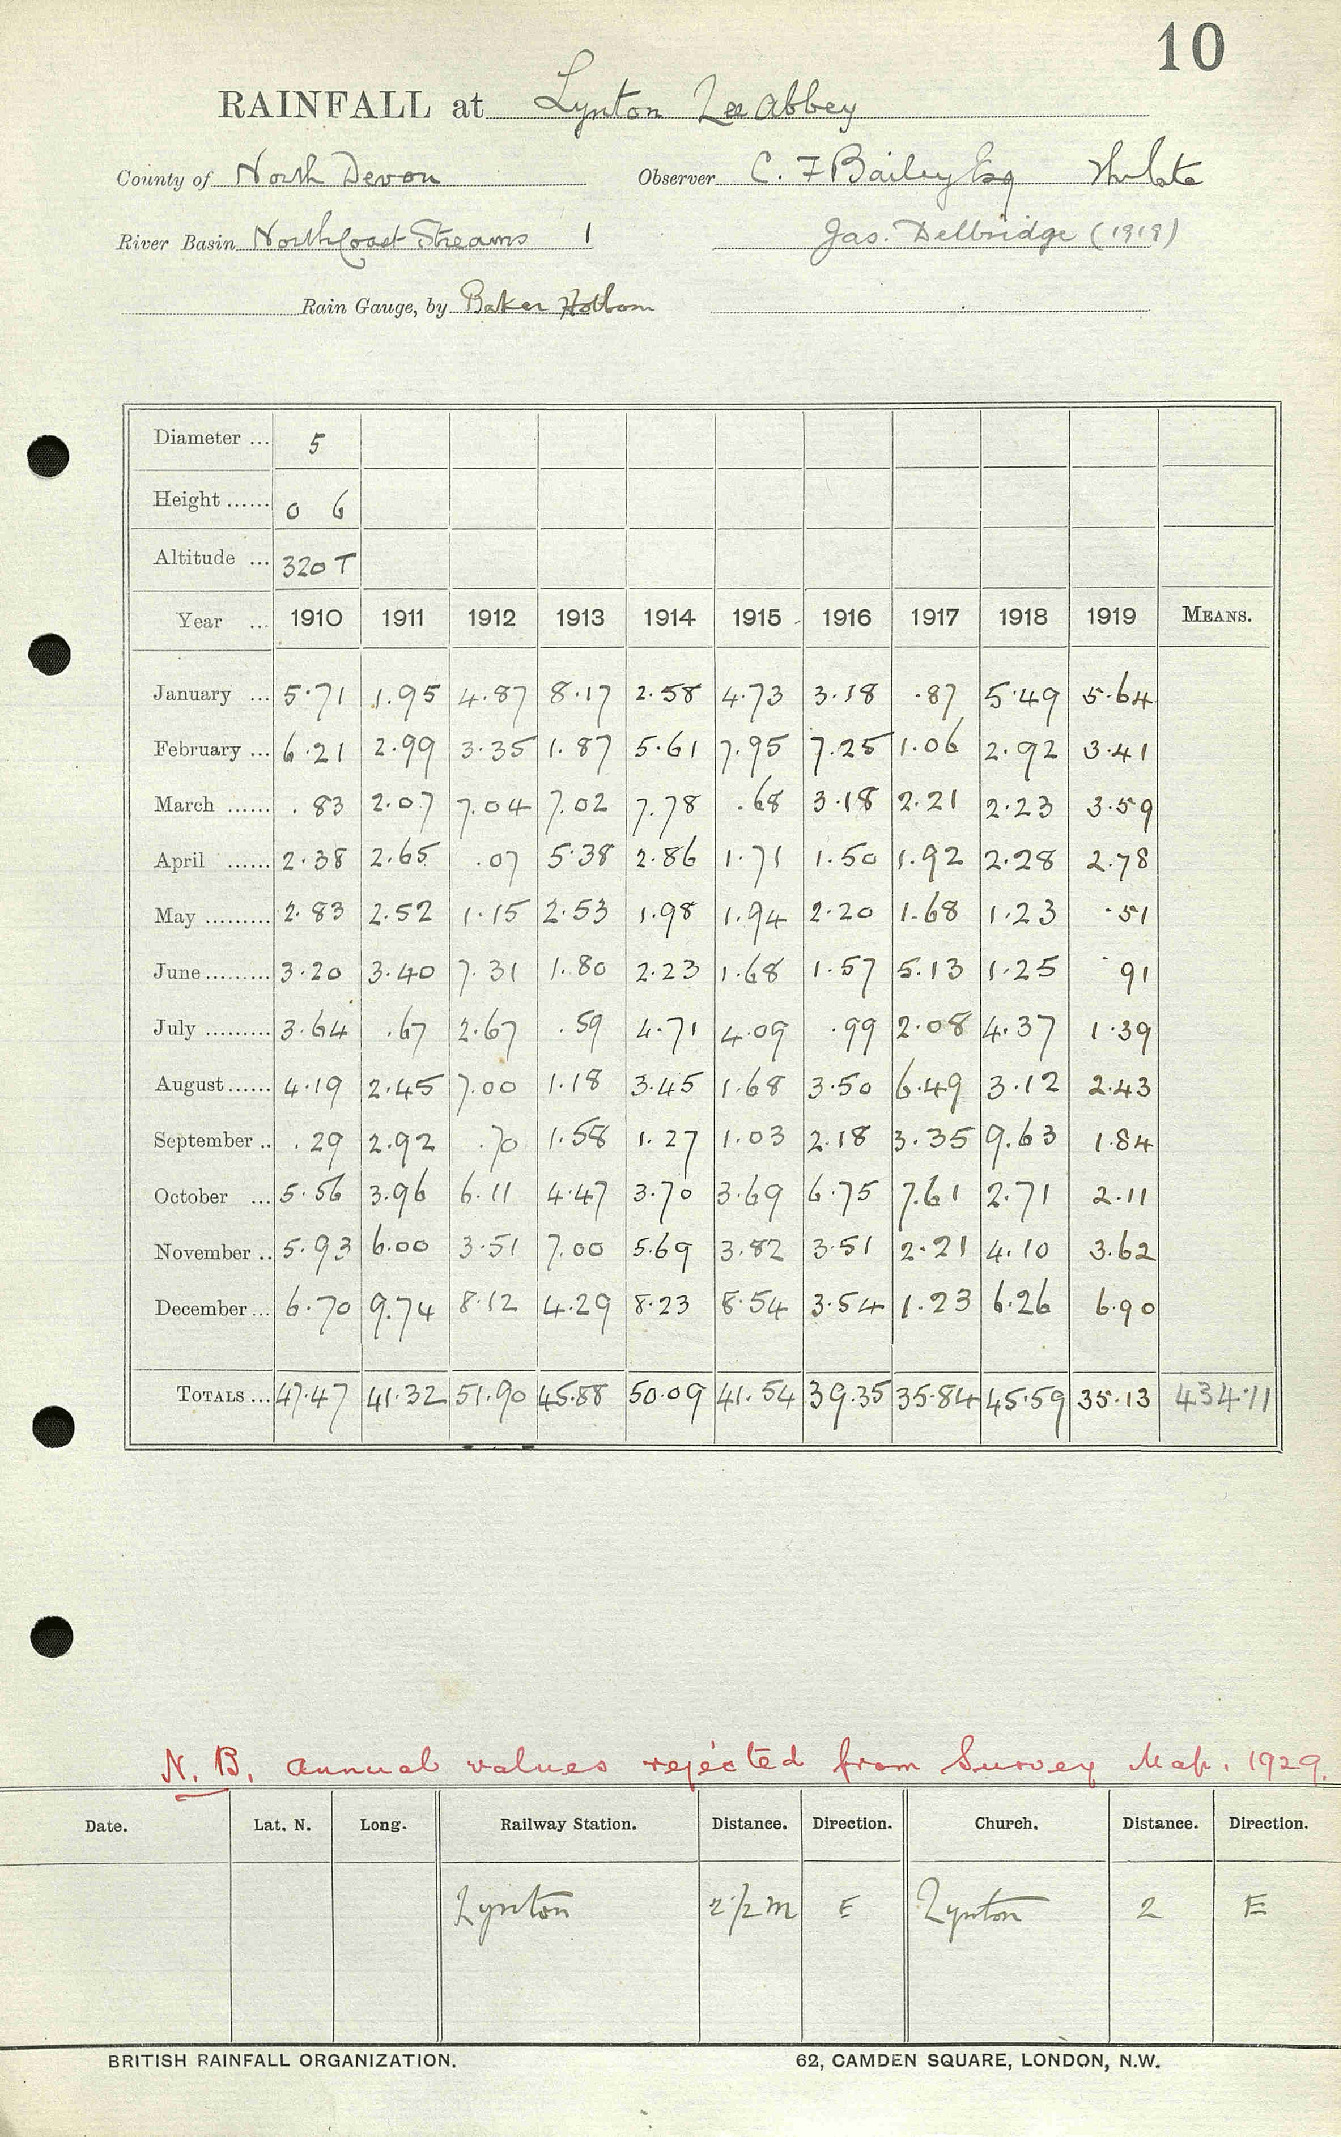 10
RAINFALL at Lynton Lee Abbey
County of North Devon Observer C. F Bailey Esq
River Basin North Coast Streams 1 Jas. Delbridge (1919)
Rain Gauge, by Baker Holborn
Diameter ... 5
Height ...... 0 6
Altitude ... 320 T
Year ... 1910 1911 1912 1913 1914 1915 1916 1917 1918 1919 MEANS.
January ... 5.71 1.95 4.87 8.17 2.58 4.73 3.18 .87 5.49 5.64
February ... 6.21 2.99 3.35 1.87 5.61 7.95 7.25 1.06 2.92 3.41
March ...... .83 2.07 7.04 7.02 7.78 .68 3.18 2.21 2.23 3.59
April ...... 2.38 2.65 .07 5.38 2.86 1.71 1.50 1.92 2.28 2.78
May ......... 2.83 2.52 1.15 2.53 1.98 1.94 2.20 1.68 1.23 .51
June ......... 3.20 3.40 7.31 1.80 2.23 1.68 1.57 5.13 1.25 91
July ......... 3.64 .67 2.67 .59 4.71 4.09 .99 2.08 4.37 1.39
August ...... 4.19 2.45 7.00 1.18 3.45 1.68 3.50 6.49 3.12 2.43
September .. .29 2.92 .70 1.58 1.27 1.03 2.18 3.35 9.63 1.84
October ... 5.56 3.96 6.11 4.47 3.70 3.69 6.75 7.61 2.71 2.11
November .. 5.93 6.00 3.51 7.00 5.69 3.82 3.51 2.21 4.10 3.62
December ... 6.70 9.74 8.12 4.29 8.23 8.54 3.54 1.23 6.26 6.90
TOTALS ... 47.47 41.32 51.90 45.88 50.09 41.54 39.35 35.84 45.59 35.13 434.11
N.B. Annual values rejected from Survey Map. 1929.
Date. Lat. N. Long. Railway Station. Distance. Direction. Church. Distance. Direction.
Lynton 2 1/2 m E Lynton 2 E
BRITISH RAINFALL ORGANIZATION. 62, CAMDEN SQUARE, LONDON, N.W.